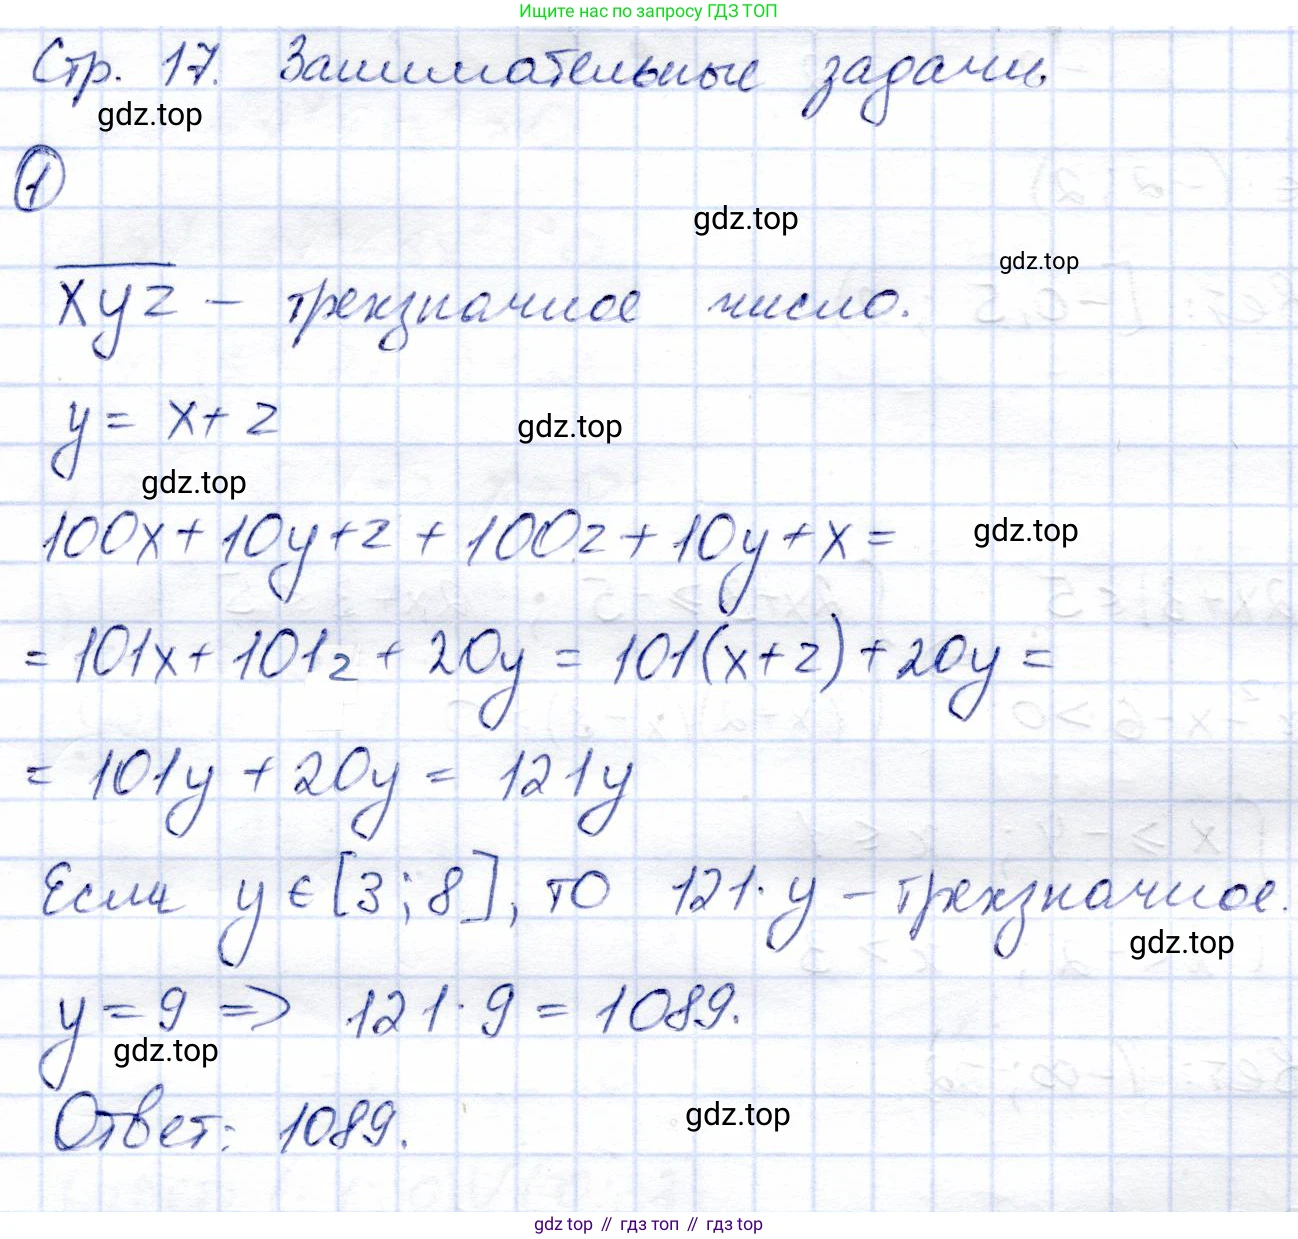 Ищите нас по запросу ГДЗ ТОП
Стр. 17. Занимательные задачи.
gdz.top
1
gdz.top
gdz.top
xyz - трехзначное число.
y = x + z
gdz.top
gdz.top
100x + 10y + z + 100z + 10y + x =
gdz.top
= 101x + 101z + 20y = 101(x+z) + 20y =
= 101y + 20y = 121y
Если y ∈ [3; 8], то 121·y - трехзначное.
gdz.top
y = 9 => 121·9 = 1089.
gdz.top
Ответ: 1089.
gdz.top
gdz top // гдз топ // гдз top